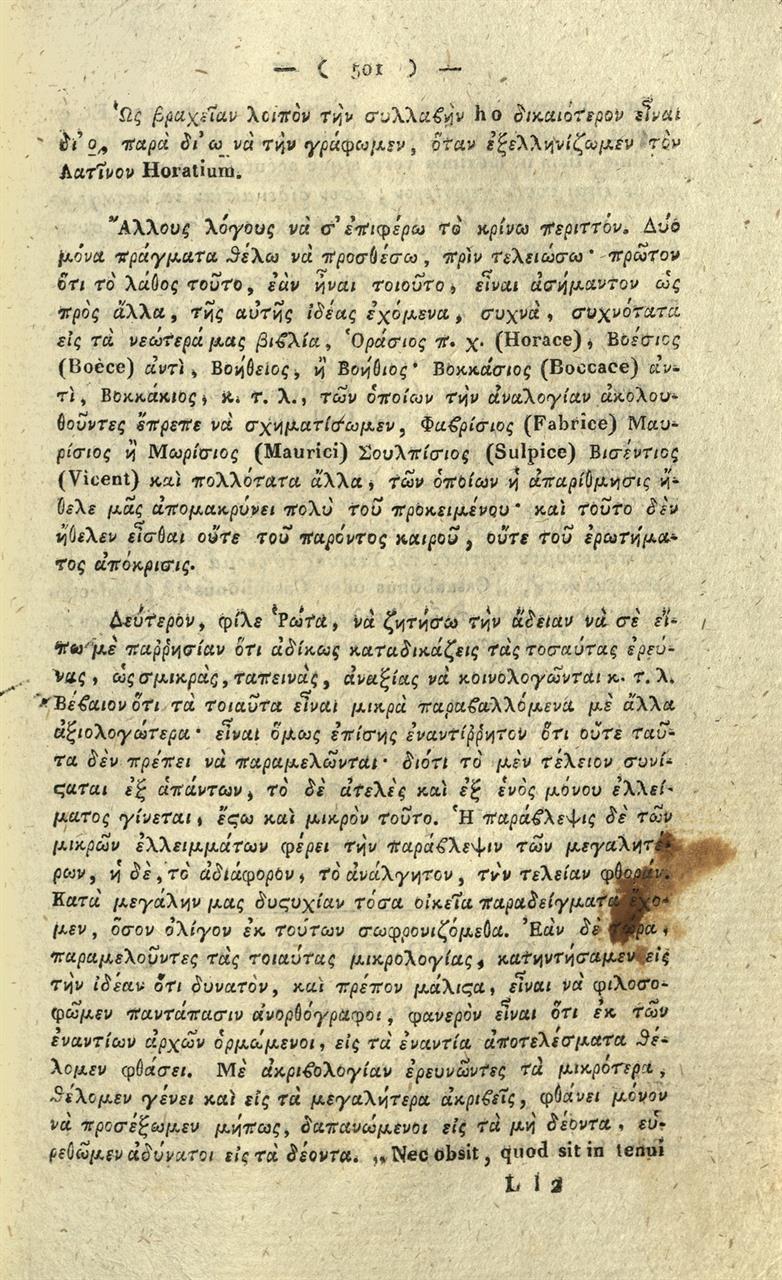 — ( 501 ) —
Ὡς βραχεῖαν λοιπὸν τὴν συλλαϐὴν ho δικαιότερον εἶναι
δι’ ο, παρὰ δι’ ω νὰ τὴν γράφωμεν, ὅταν ἐξελληνίζωμεν τὸν
Λατῖνον Horatium.
Ἄλλους λόγους νὰ σ’ ἐπιφέρω τὸ κρίνω περιττόν. Δύο
μόνα πράγματα θέλω νὰ προσθέσω, πρὶν τελειώσω· πρῶτον
ὅτι τὸ λάθος τοῦτο, ἐὰν ἦναι τοιοῦτο, εἶναι ἀσήμαντον ὡς
πρὸς ἄλλα, τῆς αὐτῆς ἰδέας ἐχόμενα, συχνὰ, συχνότατα
εἰς τὰ νεώτερά μας βιϐλία, Ὁράσιος π. χ. (Horace), Βοέσιος
(Boèce) ἀντὶ, Βοήθειος, ἢ Βοήθιος· Βοκκάσιος (Boccace) ἀν-
τὶ, Βοκκάκιος, κ. τ. λ., τῶν ὁποίων τὴν ἀναλογίαν ἀκολου-
θοῦντες ἔπρεπε νὰ σχηματίσωμεν, Φαϐρίσιος (Fabrice) Μαυ-
ρίσιος ἢ Μωρίσιος (Maurici) Σουλπίσιος (Sulpice) Βισέντιος
(Vicent) καὶ πολλότατα ἄλλα, τῶν ὁποίων ἡ ἀπαρίθμησις ἤ-
θελε μᾶς ἀπομακρύνει πολὺ τοῦ προκειμένου· καὶ τοῦτο δὲν
ἤθελεν εἶσθαι οὔτε τοῦ παρόντος καιροῦ, οὔτε τοῦ ἐρωτήμα-
τος ἀπόκρισις.
Δεύτερον, φίλε Ῥώτα, νὰ ζητήσω τὴν ἄδειαν νὰ σὲ εἴ-
πω μὲ παῤῥησίαν ὅτι ἀδίκως καταδικάζεις τὰς τοσαύτας ἐρεύ-
νας, ὡς σμικρὰς, ταπεινὰς, ἀναξίας νὰ κοινολογῶνται κ. τ. λ.
Βέϐαιον ὅτι τὰ τοιαῦτα εἶναι μικρὰ παραϐαλλόμενα μὲ ἄλλα
ἀξιολογώτερα· εἶναι ὅμως ἐπίσης ἐναντίῤῥητον ὅτι οὔτε ταῦ-
τα δὲν πρέπει νὰ παραμελῶνται· διότι τὸ μὲν τέλειον συνί-
ϛαται ἐξ ἁπάντων, τὸ δὲ ἀτελὲς καὶ ἐξ ἑνὸς μόνου ἐλλεί-
ματος γίνεται, ἔϛω καὶ μικρὸν τοῦτο. Ἡ παράϐλεψις δὲ τῶν
μικρῶν ἐλλειμμάτων φέρει τὴν παράϐλεψιν τῶν μεγαλητέ-
ρων, ἡ δὲ, τὸ ἀδιάφορον, τὸ ἀνάλγητον, τὴν τελείαν φθοράν.
Κατὰ μεγάλην μας δυϛυχίαν τόσα οἰκεῖα παραδείγματα ἔχο-
μεν, ὅσον ὀλίγον ἐκ τούτων σωφρονιζόμεθα. Ἐὰν δὲ τώρα,
παραμελοῦντες τὰς τοιαύτας μικρολογίας, κατηντήσαμεν εἰς
τὴν ἰδέαν ὅτι δυνατὸν, καὶ πρέπον μάλιϛα, εἶναι νὰ φιλοσο-
φῶμεν παντάπασιν ἀνορθόγραφοι, φανερὸν εἶναι ὅτι ἐκ τῶν
ἐναντίων ἀρχῶν ὁρμώμενοι, εἰς τὰ ἐναντία ἀποτελέσματα θέ-
λομεν φθάσει. Μὲ ἀκριϐολογίαν ἐρευνῶντες τὰ μικρότερα,
θέλομεν γένει καὶ εἰς τὰ μεγαλήτερα ἀκριϐεῖς, φθάνει μόνον
νὰ προσέξωμεν μήπως, δαπανώμενοι εἰς τὰ μὴ δέοντα, εὑ-
ρεθῶμεν ἀδύνατοι εἰς τὰ δέοντα. „Nec obsit, quod sit in tenui
L l 2